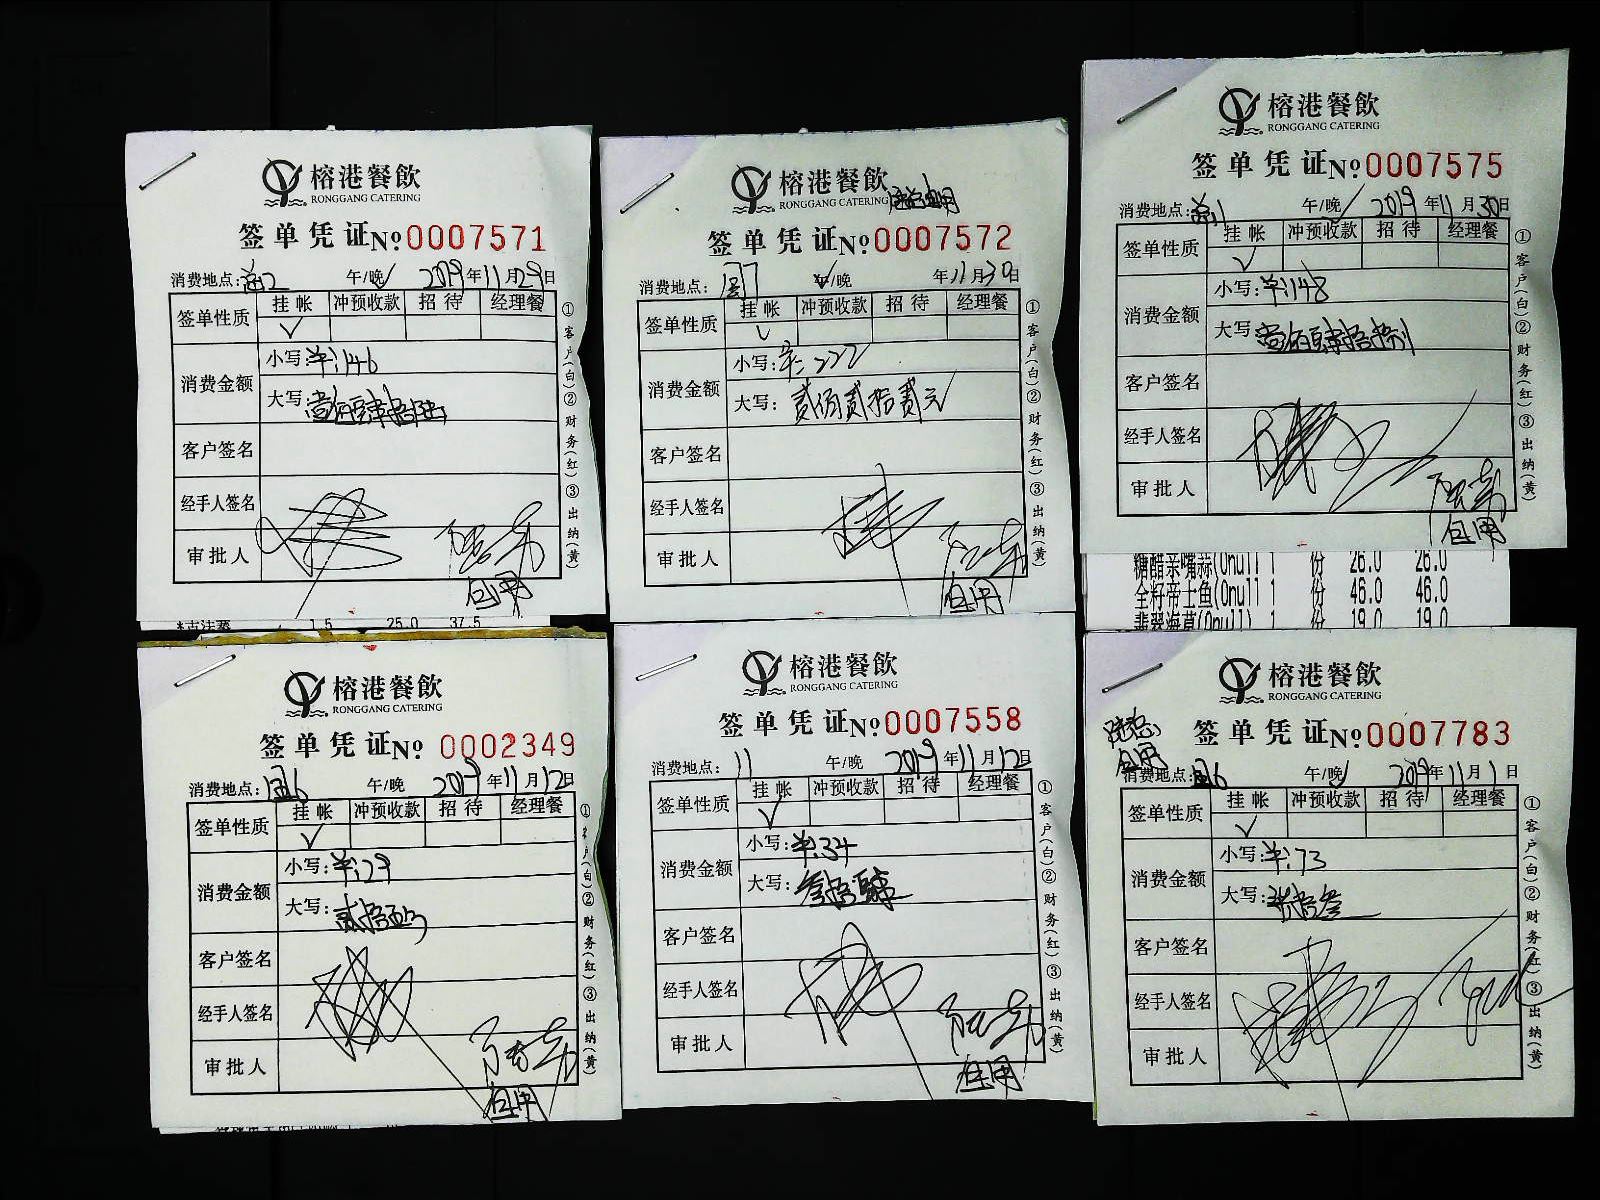 榕港餐飲
RONGGANG CATERING
签单凭证 №0007571
消费地点: 午/晚✓ 2019年11月29日
签单性质 挂帐 冲预收款 招待 经理餐
✓
消费金额
小写:¥:146
大写:壹佰肆拾陆
客户签名
经手人签名
审批人
自用
①客户(白)②财务(红)③出纳(黄)
*古法蒸 1.5 25.0 37.5
榕港餐飲
RONGGANG CATERING
自用
签单凭证 №0007572
消费地点: 午/晚 年11月30日
签单性质 挂帐 冲预收款 招待 经理餐
✓
消费金额
小写:¥:222
大写:贰佰贰拾贰元
客户签名
经手人签名
审批人
自用
①客户(白)②财务(红)③出纳(黄)
榕港餐飲
RONGGANG CATERING
签单凭证 №0007575
消费地点: 午/晚✓ 2019年11月30日
签单性质 挂帐 冲预收款 招待 经理餐
✓
消费金额
小写:¥:148
大写:壹佰肆拾捌
客户签名
经手人签名
审批人
自用
①客户(白)②财务(红)③出纳(黄)
糖醋亲嘴蒜(0null 1 份 26.0 26.0
全籽帝士鱼(0null 1 份 46.0 46.0
翡翠海草(0null) 1 份 19.0 19.0
榕港餐飲
RONGGANG CATERING
签单凭证 № 0002349
消费地点: 午/晚 2019年11月12日
签单性质 挂帐 冲预收款 招待 经理餐
✓
消费金额
小写:¥:29
大写:贰拾
客户签名
经手人签名
审批人
自用
①客户(白)②财务(红)③出纳(黄)
榕港餐飲
RONGGANG CATERING
签单凭证 №0007558
消费地点: 11 午/晚 2019年11月12日
签单性质 挂帐 冲预收款 招待 经理餐
✓
消费金额
小写:¥:34
大写:叁拾肆
客户签名
经手人签名
审批人
自用
①客户(白)②财务(红)③出纳(黄)
榕港餐飲
RONGGANG CATERING
签单凭证 №0007783
自用
消费地点: 午/晚✓ 2019年11月1日
签单性质 挂帐 冲预收款 招待 经理餐
✓
消费金额
小写:¥:73
大写:柒拾叁
客户签名
经手人签名
审批人
①客户(白)②财务(红)③出纳(黄)